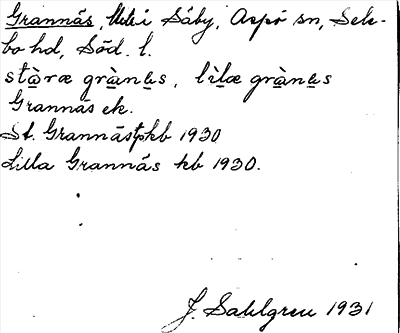 Grannäs, Ute i Säby, Aspö sn, Sele-
bo hd, Söd. l.
stɑ̀̀ræ grɑ̀nɛs, lìlæ grɑ̀nɛs
Grannäs ek.
St. Grannäs kb 1930
Lilla Grannäs kb 1930.
J. Sahlgren 1931